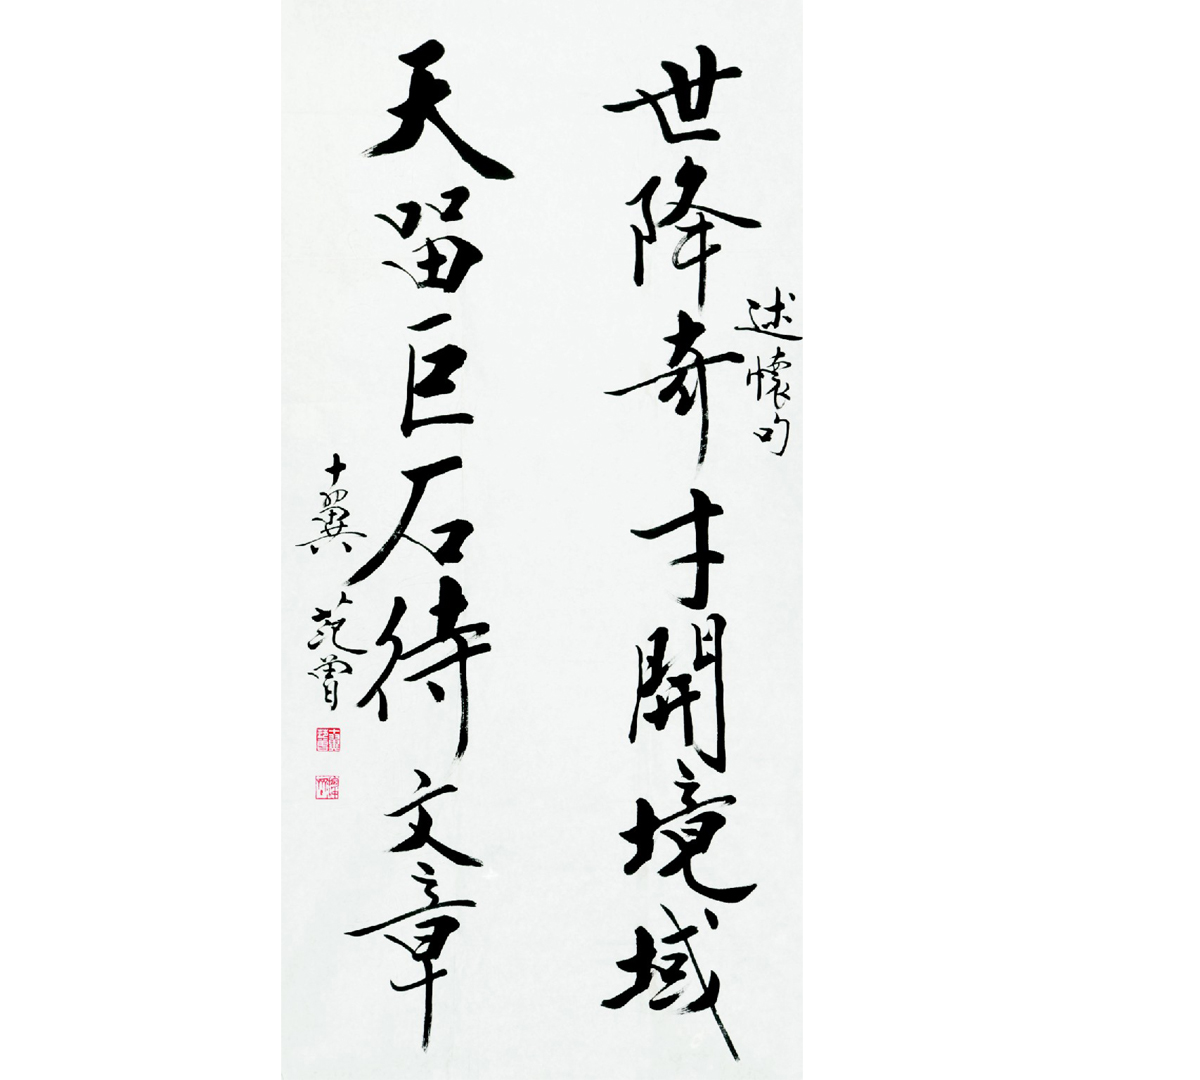 述懷句
世降奇才開境域
天留巨石待文章
十翼 范曾